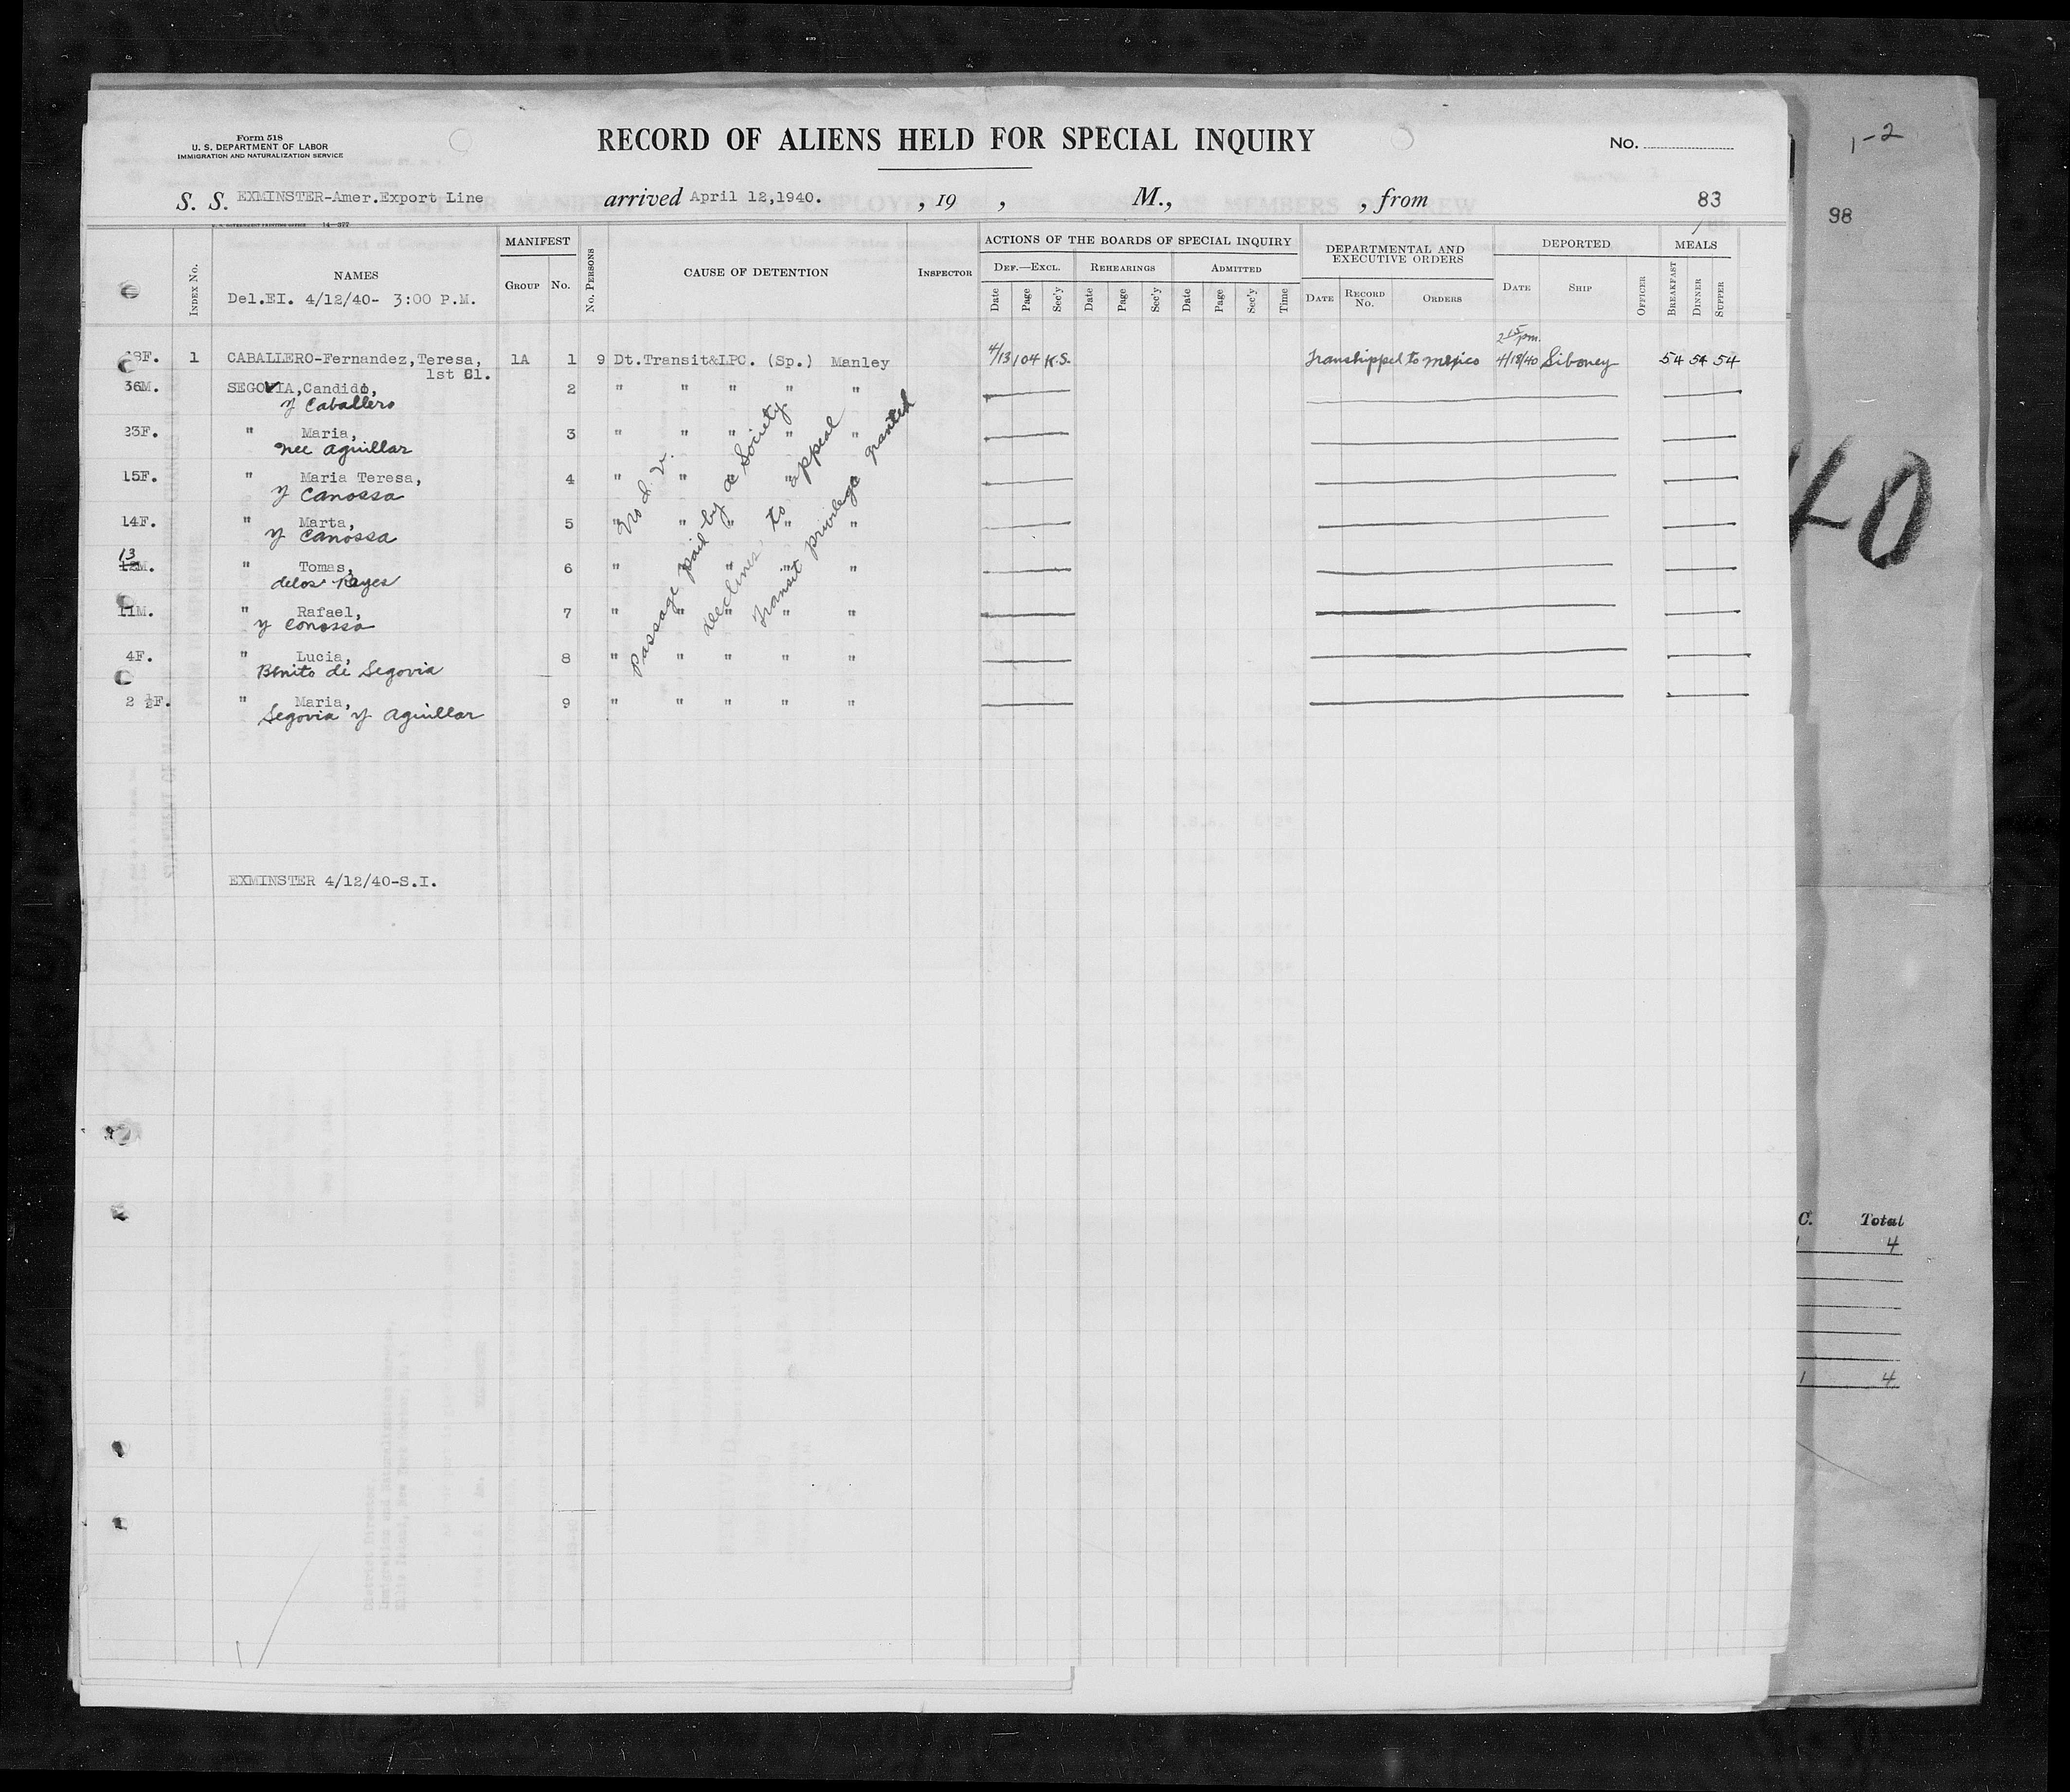 1-2
Form 518
U. S. DEPARTMENT OF LABOR
IMMIGRATION AND NATURALIZATION SERVICE
RECORD OF ALIENS HELD FOR SPECIAL INQUIRY
No.
S. S. EXMINSTER-Amer.Export Line arrived April 12,1940. , 19 , M., , from 83
98
U. S. GOVERNMENT PRINTING OFFICE 14-577
INDEX No. NAMES MANIFEST GROUP No. No. PERSONS CAUSE OF DETENTION INSPECTOR
ACTIONS OF THE BOARDS OF SPECIAL INQUIRY
DEF.—EXCL. REHEARINGS ADMITTED
Date Page Sec'y Date Page Sec'y Date Page Sec'y Time
DEPARTMENTAL AND EXECUTIVE ORDERS
DATE RECORD No. ORDERS
DEPORTED
DATE SHIP OFFICER
MEALS
BREAKFAST DINNER SUPPER
Del.EI. 4/12/40- 3:00 P.M.
2 15 pm.
8F. 1 CABALLERO-Fernandez,Teresa, 1A 1 9 Dt.Transit&LPC. (Sp.) Manley 4/13 104 K.S. Transhipped to Mexico 4/18/40 Siboney 54 54 54
1st Cl.
36M. SEGOVIA,Candido, 2 " " " " "
y Caballero
23F. " Maria, 3 " " " " "
nee Aguillar
15F. " Maria Teresa, 4 " " " " "
y Canossa
14F. " Marta, 5 " " " " "
y Canossa
13
12M. " Tomas, 6 " " " " "
delos Reyes
11M. " Rafael, 7 " " " " "
y Conossa
4F. " Lucia, 8 " " " " "
Benito de Segovia
2 ½F. " Maria, 9 " " " " "
Segovia y Aguillar
No d. v.
Passage paid by a Society
declines to appeal
Transit privilege granted
40
EXMINSTER 4/12/40-S.I.
C. Total
1 4
1 4